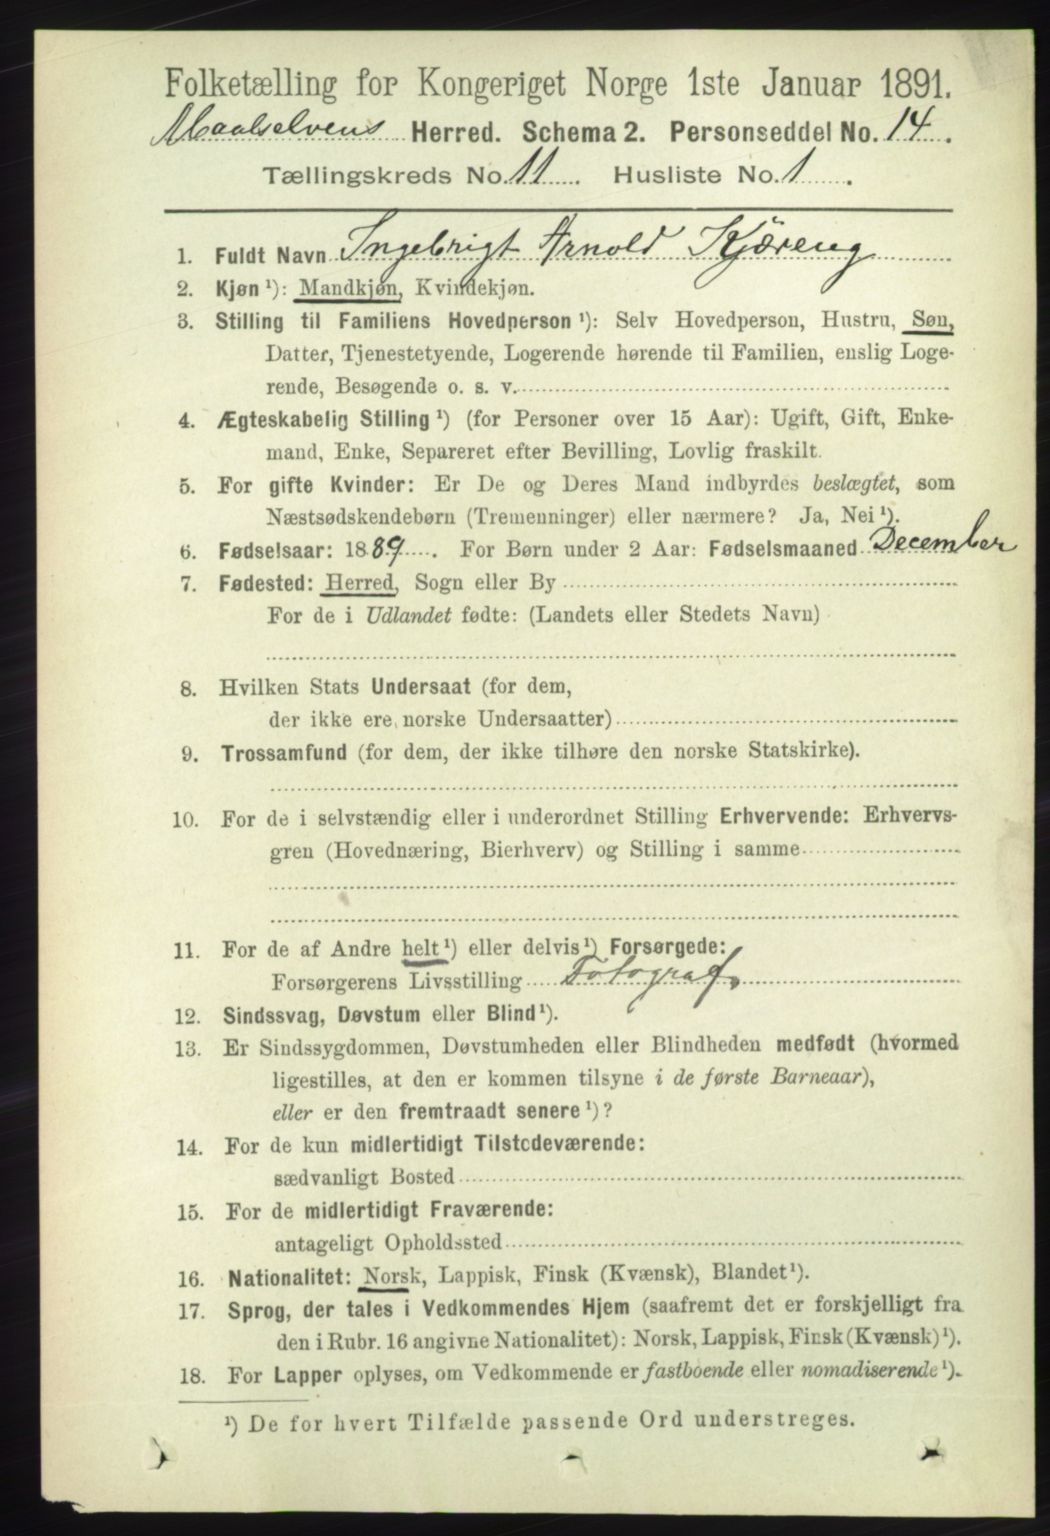 Folketælling for Kongeriget Norge 1ste Januar 1891.
Maalselvens Herred. Schema 2. Personseddel No. 14.
Tællingskreds No. 11. Husliste No. 1.
1. Fuldt Navn Ingebrigt Arnold Kjæreng
2. Kjøn ¹): Mandkjøn, Kvindekjøn.
3. Stilling til Familiens Hovedperson ¹): Selv Hovedperson, Hustru, Søn,
Datter, Tjenestetyende, Logerende hørende til Familien, enslig Loge-
rende, Besøgende o. s. v.
4. Ægteskabelig Stilling ¹) (for Personer over 15 Aar): Ugift, Gift, Enke-
mand, Enke, Separeret efter Bevilling, Lovlig fraskilt.
5. For gifte Kvinder: Er De og Deres Mand indbyrdes beslægtet, som
Næstsødskendebørn (Tremenninger) eller nærmere? Ja, Nei ¹).
6. Fødselsaar: 1889. For Børn under 2 Aar: Fødselsmaaned December
7. Fødested: Herred, Sogn eller By
For de i Udlandet fødte: (Landets eller Stedets Navn)
8. Hvilken Stats Undersaat (for dem,
der ikke ere norske Undersaatter)
9. Trossamfund (for dem, der ikke tilhøre den norske Statskirke).
10. For de i selvstændig eller i underordnet Stilling Erhvervende: Erhvervs-
gren (Hovednæring, Bierhverv) og Stilling i samme
11. For de af Andre helt ¹) eller delvis ¹) Forsørgede:
Forsørgerens Livsstilling Fotograf.
12. Sindssvag, Døvstum eller Blind ¹).
13. Er Sindssygdommen, Døvstumheden eller Blindheden medfødt (hvormed
ligestilles, at den er kommen tilsyne i de første Barneaar),
eller er den fremtraadt senere ¹)?
14. For de kun midlertidigt Tilstedeværende:
sædvanligt Bosted
15. For de midlertidigt Fraværende:
antageligt Opholdssted
16. Nationalitet: Norsk, Lappisk, Finsk (Kvænsk), Blandet ¹).
17. Sprog, der tales i Vedkommendes Hjem (saafremt det er forskjelligt fra
den i Rubr. 16 angivne Nationalitet): Norsk, Lappisk, Finsk (Kvænsk) ¹).
18. For Lapper oplyses, om Vedkommende er fastboende eller nomadiserende ¹).
¹) De for hvert Tilfælde passende Ord understreges.